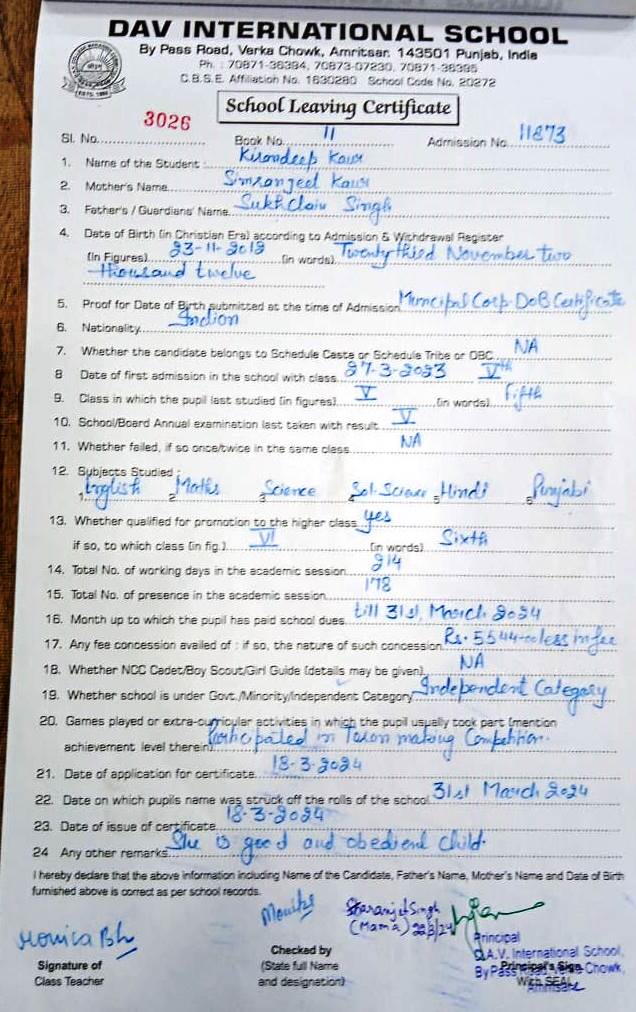 DAV INTERNATIONAL SCHOOL
By Pass Road, Verka Chowk, Amritsar. 143501 Punjab, India
Ph. : 70871-36394, 70873-07230, 70871-36395
C.B.S.E. Affiliation No. 1630280 School Code No. 20272
School Leaving Certificate
Sl. No. 3026 Book No. 11 Admission No. 11873
1. Name of the Student : Kirandeep Kaur
2. Mother's Name Simranjeet Kaur
3. Father's / Guardians' Name Sukhchain Singh
4. Date of Birth (in Christian Era) according to Admission & Withdrawal Register
(in Figures) 23-11-2012 (in words) Twenty third November two
thousand twelve
5. Proof for Date of Birth submitted at the time of Admission Muncipal Corp. DoB Certificate
6. Nationality Indian
7. Whether the candidate belongs to Schedule Caste or Schedule Tribe or OBC NA
8 Date of first admission in the school with class 27-3-2023 Vth
9. Class in which the pupil last studied (in figures) V (in words) Fifth
10. School/Board Annual examination last taken with result V
11. Whether failed, if so once/twice in the same class NA
12. Subjects Studied :
1. English 2. Maths 3. Science Sol. Science 5. Hindi 6. Punjabi
13. Whether qualified for promotion to the higher class yes
if so, to which class (in fig.) VI (in words) Sixth
14. Total No. of working days in the academic session 214
15. Total No. of presence in the academic session 178
16. Month up to which the pupil has paid school dues till 31st March 2024
17. Any fee concession availed of : if so, the nature of such concession Rs. 5544 less in fee
18. Whether NCC Cadet/Boy Scout/Girl Guide (details may be given) NA
19. Whether school is under Govt./Minority/Independent Category Independent Category
20. Games played or extra-curricular activities in which the pupil usually took part (mention
achievement level therein) Participated in Toran making Competition.
21. Date of application for certificate 18-3-2024
22. Date on which pupils name was struck off the rolls of the school 31st March 2024
23. Date of issue of certificate 18-3-2024
24 Any other remarks She is good and obedient child.
I hereby declare that the above information including Name of the Candidate, Father's Name, Mother's Name and Date of Birth
furnished above is correct as per school records.
Monica Monika Sharanjit Singh
(Mama) 22/3/24
Signature of
Class Teacher
Checked by
(State full Name
and designation)
Principal
D.A.V. International School,
By Pass Road Verka Chowk,
Amritsar
Principal's Sign
With SEAL